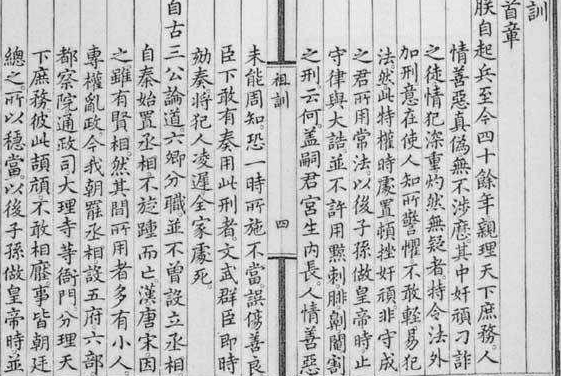 訓
首章
朕自起兵至今四十餘年親理天下庶務人
情善惡真偽無不涉歷其中奸頑刁詐
之徒情犯深重灼然無疑者特令法外
加刑意在使人知所警懼不敢輕易犯
法然此特權時處置頓挫奸頑非守成
之君所用常法以後子孫做皇帝時止
守律與大誥並不許用黥刺腓劓閹割
之刑云何盖嗣君宮生內長人情善惡
祖訓
四
未能周知恐一時所施不當誤傷善良
臣下敢有奏用此刑者文武群臣即時
劾奏將犯人凌遲全家處死
自古三公論道六卿分職並不曾設立丞相
自秦始置丞相不旋踵而亡漢唐宋因
之雖有賢相然其間所用者多有小人
專權亂政今我朝罷丞相設五府六部
都察院通政司大理寺等衙門分理天
下庶務彼此頡頏不敢相壓事皆朝廷
總之所以穩當以後子孫做皇帝時並